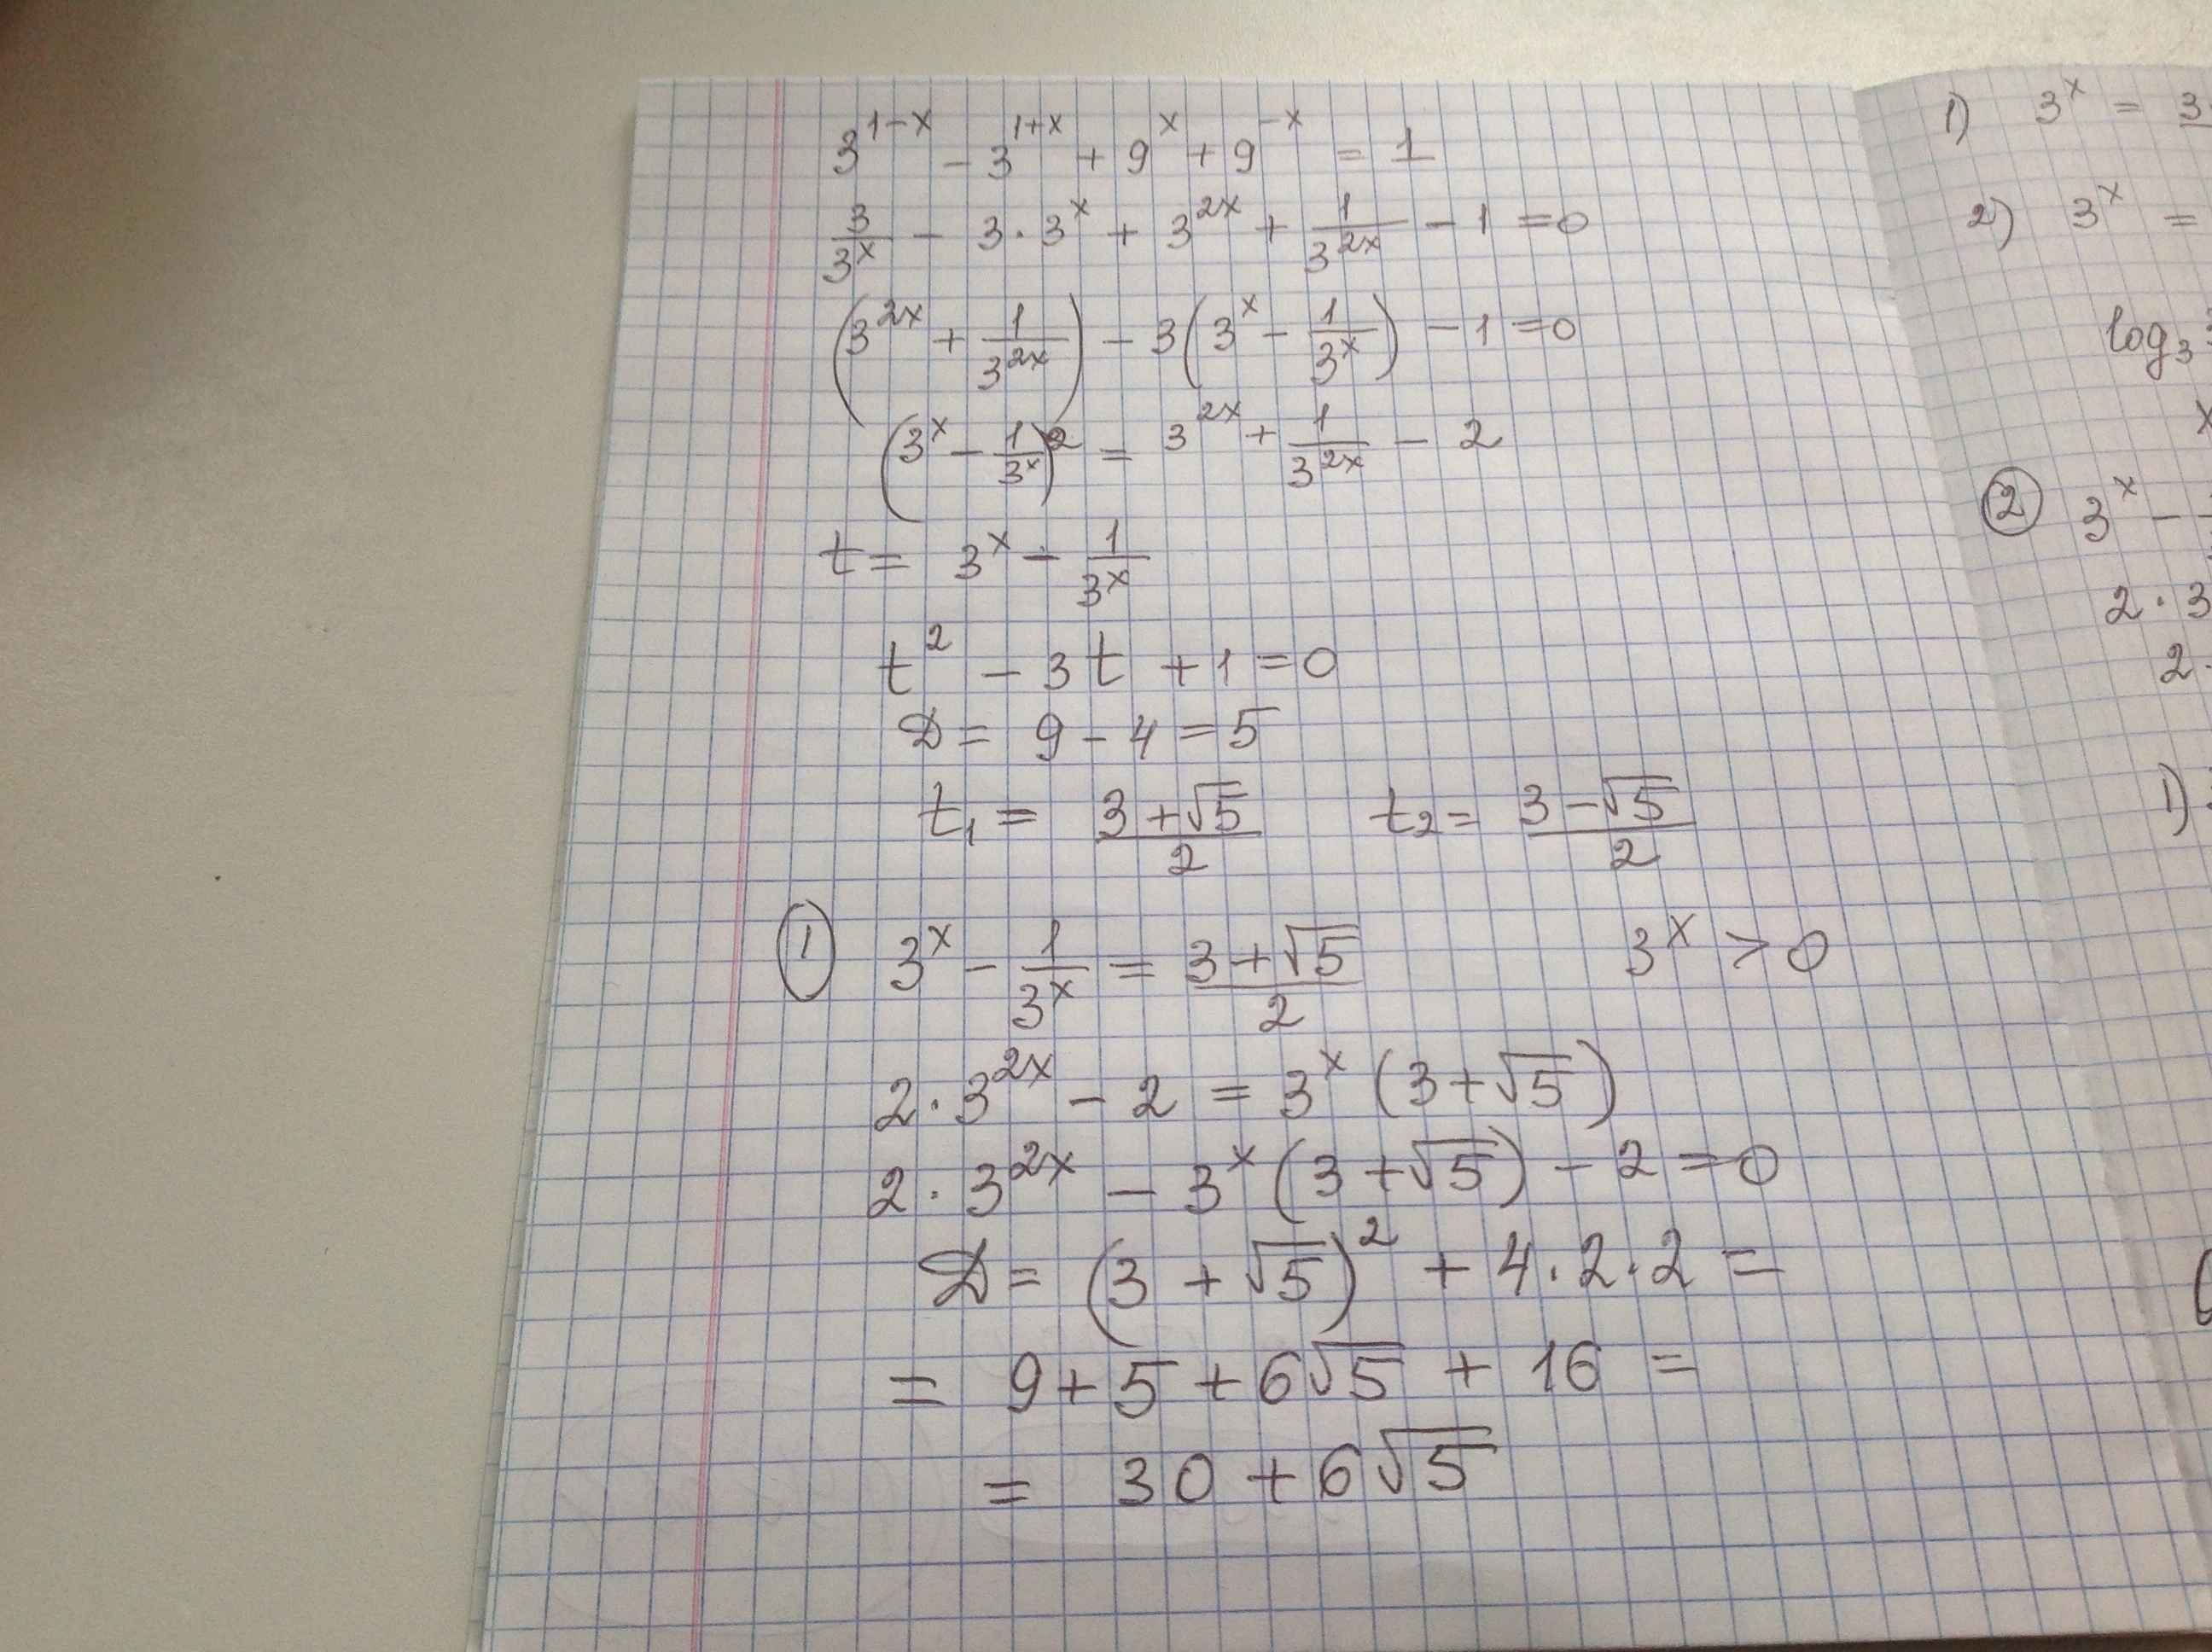 3^{1-x} - 3^{1+x} + 9^x + 9^{-x} = 1
\frac{3}{3^x} - 3 \cdot 3^x + 3^{2x} + \frac{1}{3^{2x}} - 1 = 0
(3^{2x} + \frac{1}{3^{2x}}) - 3(3^x - \frac{1}{3^x}) - 1 = 0
(3^x - \frac{1}{3^x})^2 = 3^{2x} + \frac{1}{3^{2x}} - 2
t = 3^x - \frac{1}{3^x}
t^2 - 3t + 1 = 0
D = 9 - 4 = 5
t_1 = \frac{3+\sqrt{5}}{2} t_2 = \frac{3-\sqrt{5}}{2}
① 3^x - \frac{1}{3^x} = \frac{3+\sqrt{5}}{2} 3^x > 0
2 \cdot 3^{2x} - 2 = 3^x (3+\sqrt{5})
2 \cdot 3^{2x} - 3^x (3+\sqrt{5}) - 2 = 0
D = (3+\sqrt{5})^2 + 4 \cdot 2 \cdot 2 =
= 9 + 5 + 6\sqrt{5} + 16 =
= 30 + 6\sqrt{5}
1) 3^x = 3
2) 3^x =
log_3
x
② 3^x -
2 \cdot 3
2 \cdot
1)